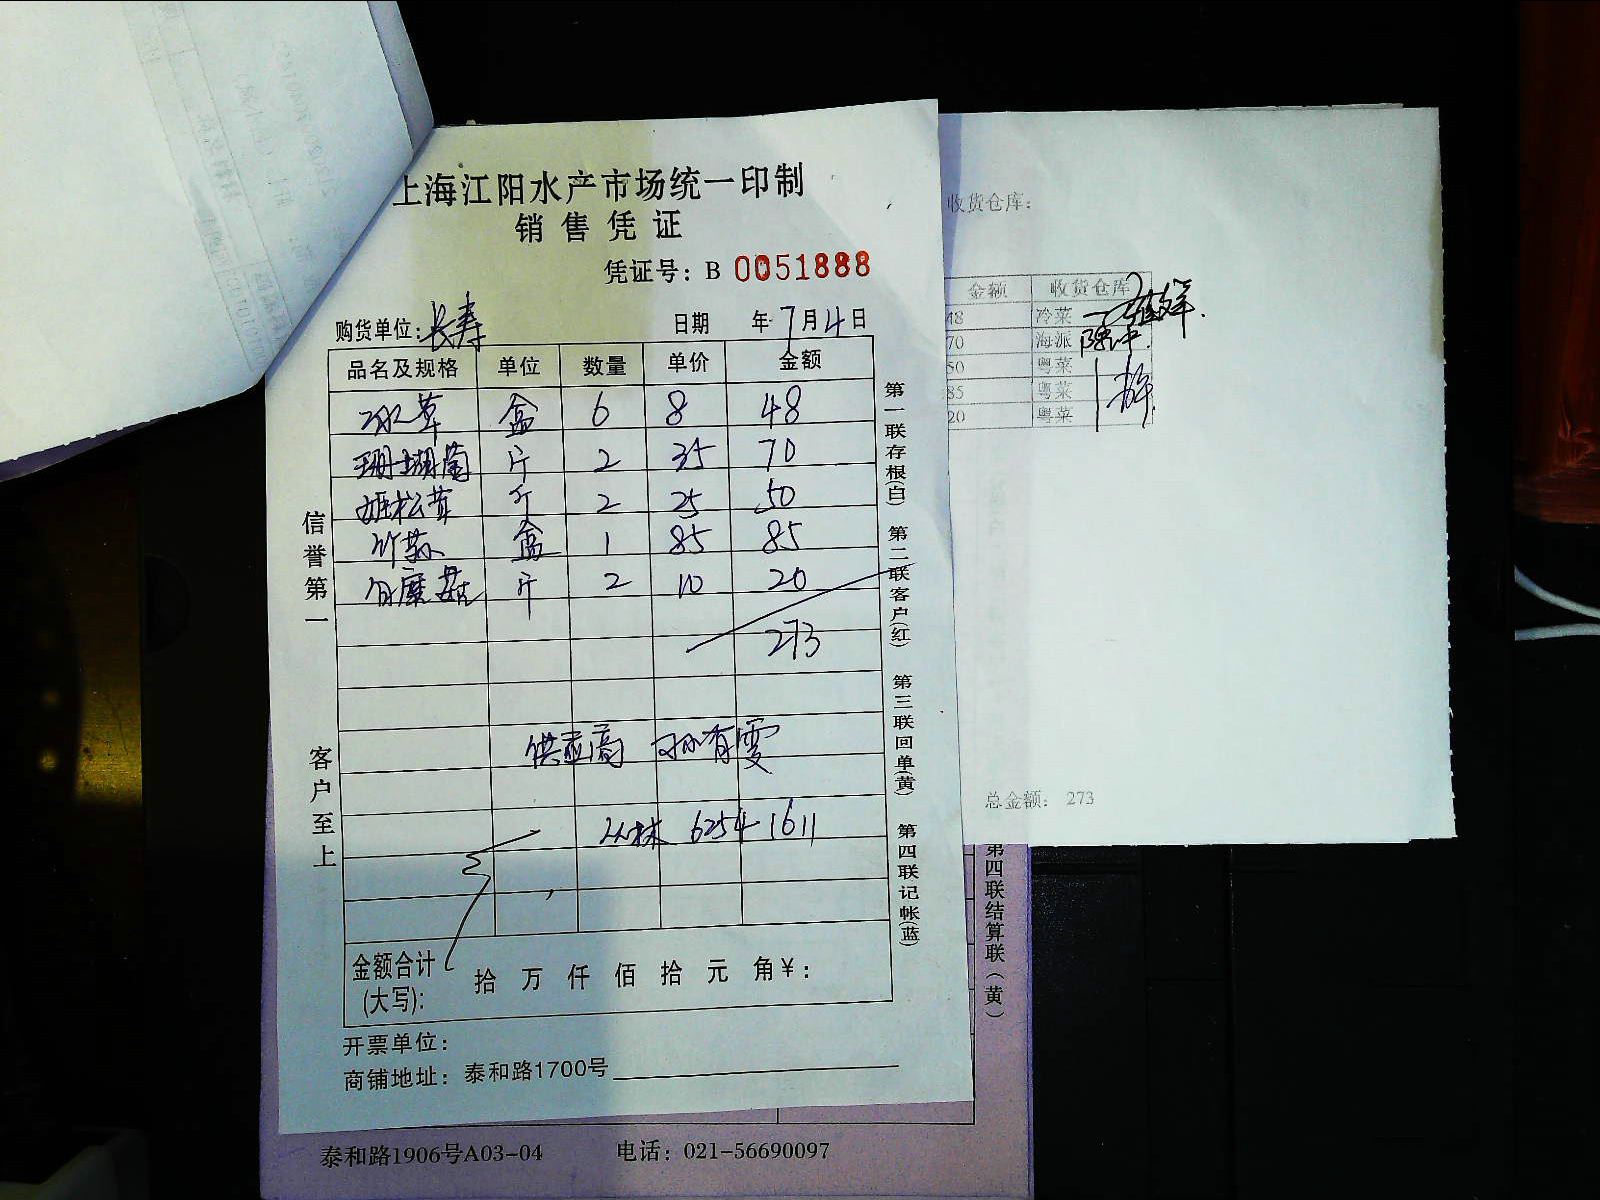 上海江阳水产市场统一印制
销售凭证
凭证号：B 0051888
购货单位：长寿 日期 年 7月4日
品名及规格 单位 数量 单价 金额
冰草 盒 6 8 48
珊瑚菌 斤 2 35 70
姬松茸 斤 2 25 50
竹荪 盒 1 85 85
白蘑菇 斤 2 10 20
273
供应商 孙有雯
丛林 6254 1611
金额合计
(大写)： 拾 万 仟 佰 拾 元 角 ¥：
开票单位：
商铺地址：泰和路1700号
信誉第一
客户至上
第一联存根(白)
第二联客户(红)
第三联回单(黄)
第四联记帐(蓝)
收货仓库：
金额 收货仓库
48 冷菜
70 海派
50 粤菜
85 粤菜
20 粤菜
总金额： 273
第四联结算联(黄)
泰和路1906号A03-04 电话：021-56690097